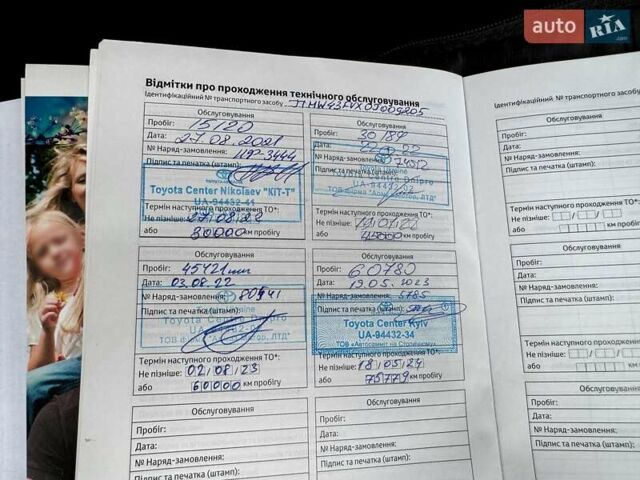 auto RIA .com
Відмітки про проходження технічного обслуговування
Ідентифікаційний № транспортного засобу
Обслуговування
Пробіг: 15190
Дата: 27.08.2021
№ Наряд-замовлення: -3444
Підпис та печатка (штамп):
Toyota Center Nikolaev "KіT-T"
UA-94432-41
Термін наступного проходження ТО*:
Не пізніше: 27/08/22
або 30000 км пробігу
Обслуговування
Пробіг: 30
Дата: 22
№ Наряд-замовлення:
Підпис та печатка (штамп):
Toyota Centre Dnipro
UA-94432-02
Термін наступного проходження ТО*:
Не пізніше:
або 45000 км пробігу
Обслуговування
Пробіг: 45421
Дата: 03.08.22
№ Наряд-замовлення:
Підпис та печатка (штамп):
Toyota Centre Dnipro
Термін наступного проходження ТО*:
Не пізніше: 02/08/23
або 60000 км пробігу
Обслуговування
Пробіг: 60780
Дата: 19.05.2023
№ Наряд-замовлення: 5785
Підпис та печатка (штамп):
Toyota Center Kyiv
UA-94432-34
ТОВ «Автосаміт на Столичному»
Термін наступного проходження ТО*:
Не пізніше: 18/05/24
або 75779 км пробігу
Обслуговування
Пробіг:
Дата:
№ Наряд-замовлення:
Підпис та печатка (штамп):
Обслуговування
Пробіг:
Дата:
№ Наряд-замовлення:
Підпис та печатка (штамп):
Ідентифікаційний № транспортного
Обслуговування
Пробіг:
Дата:
№ Наряд-замовлення:
Підпис та печатка (штамп):
Термін наступного проходження ТО*:
Не пізніше:
або км пробігу
Обслуговування
Пробіг:
Дата:
№ Наряд-замовлення:
Підпис та печатка (штамп):
Термін наступного проходження ТО*:
Не пізніше:
або км пробігу
Обслуговування
Пробіг:
Дата:
№ Наряд-замовлення:
Підпис та печатка (штамп):